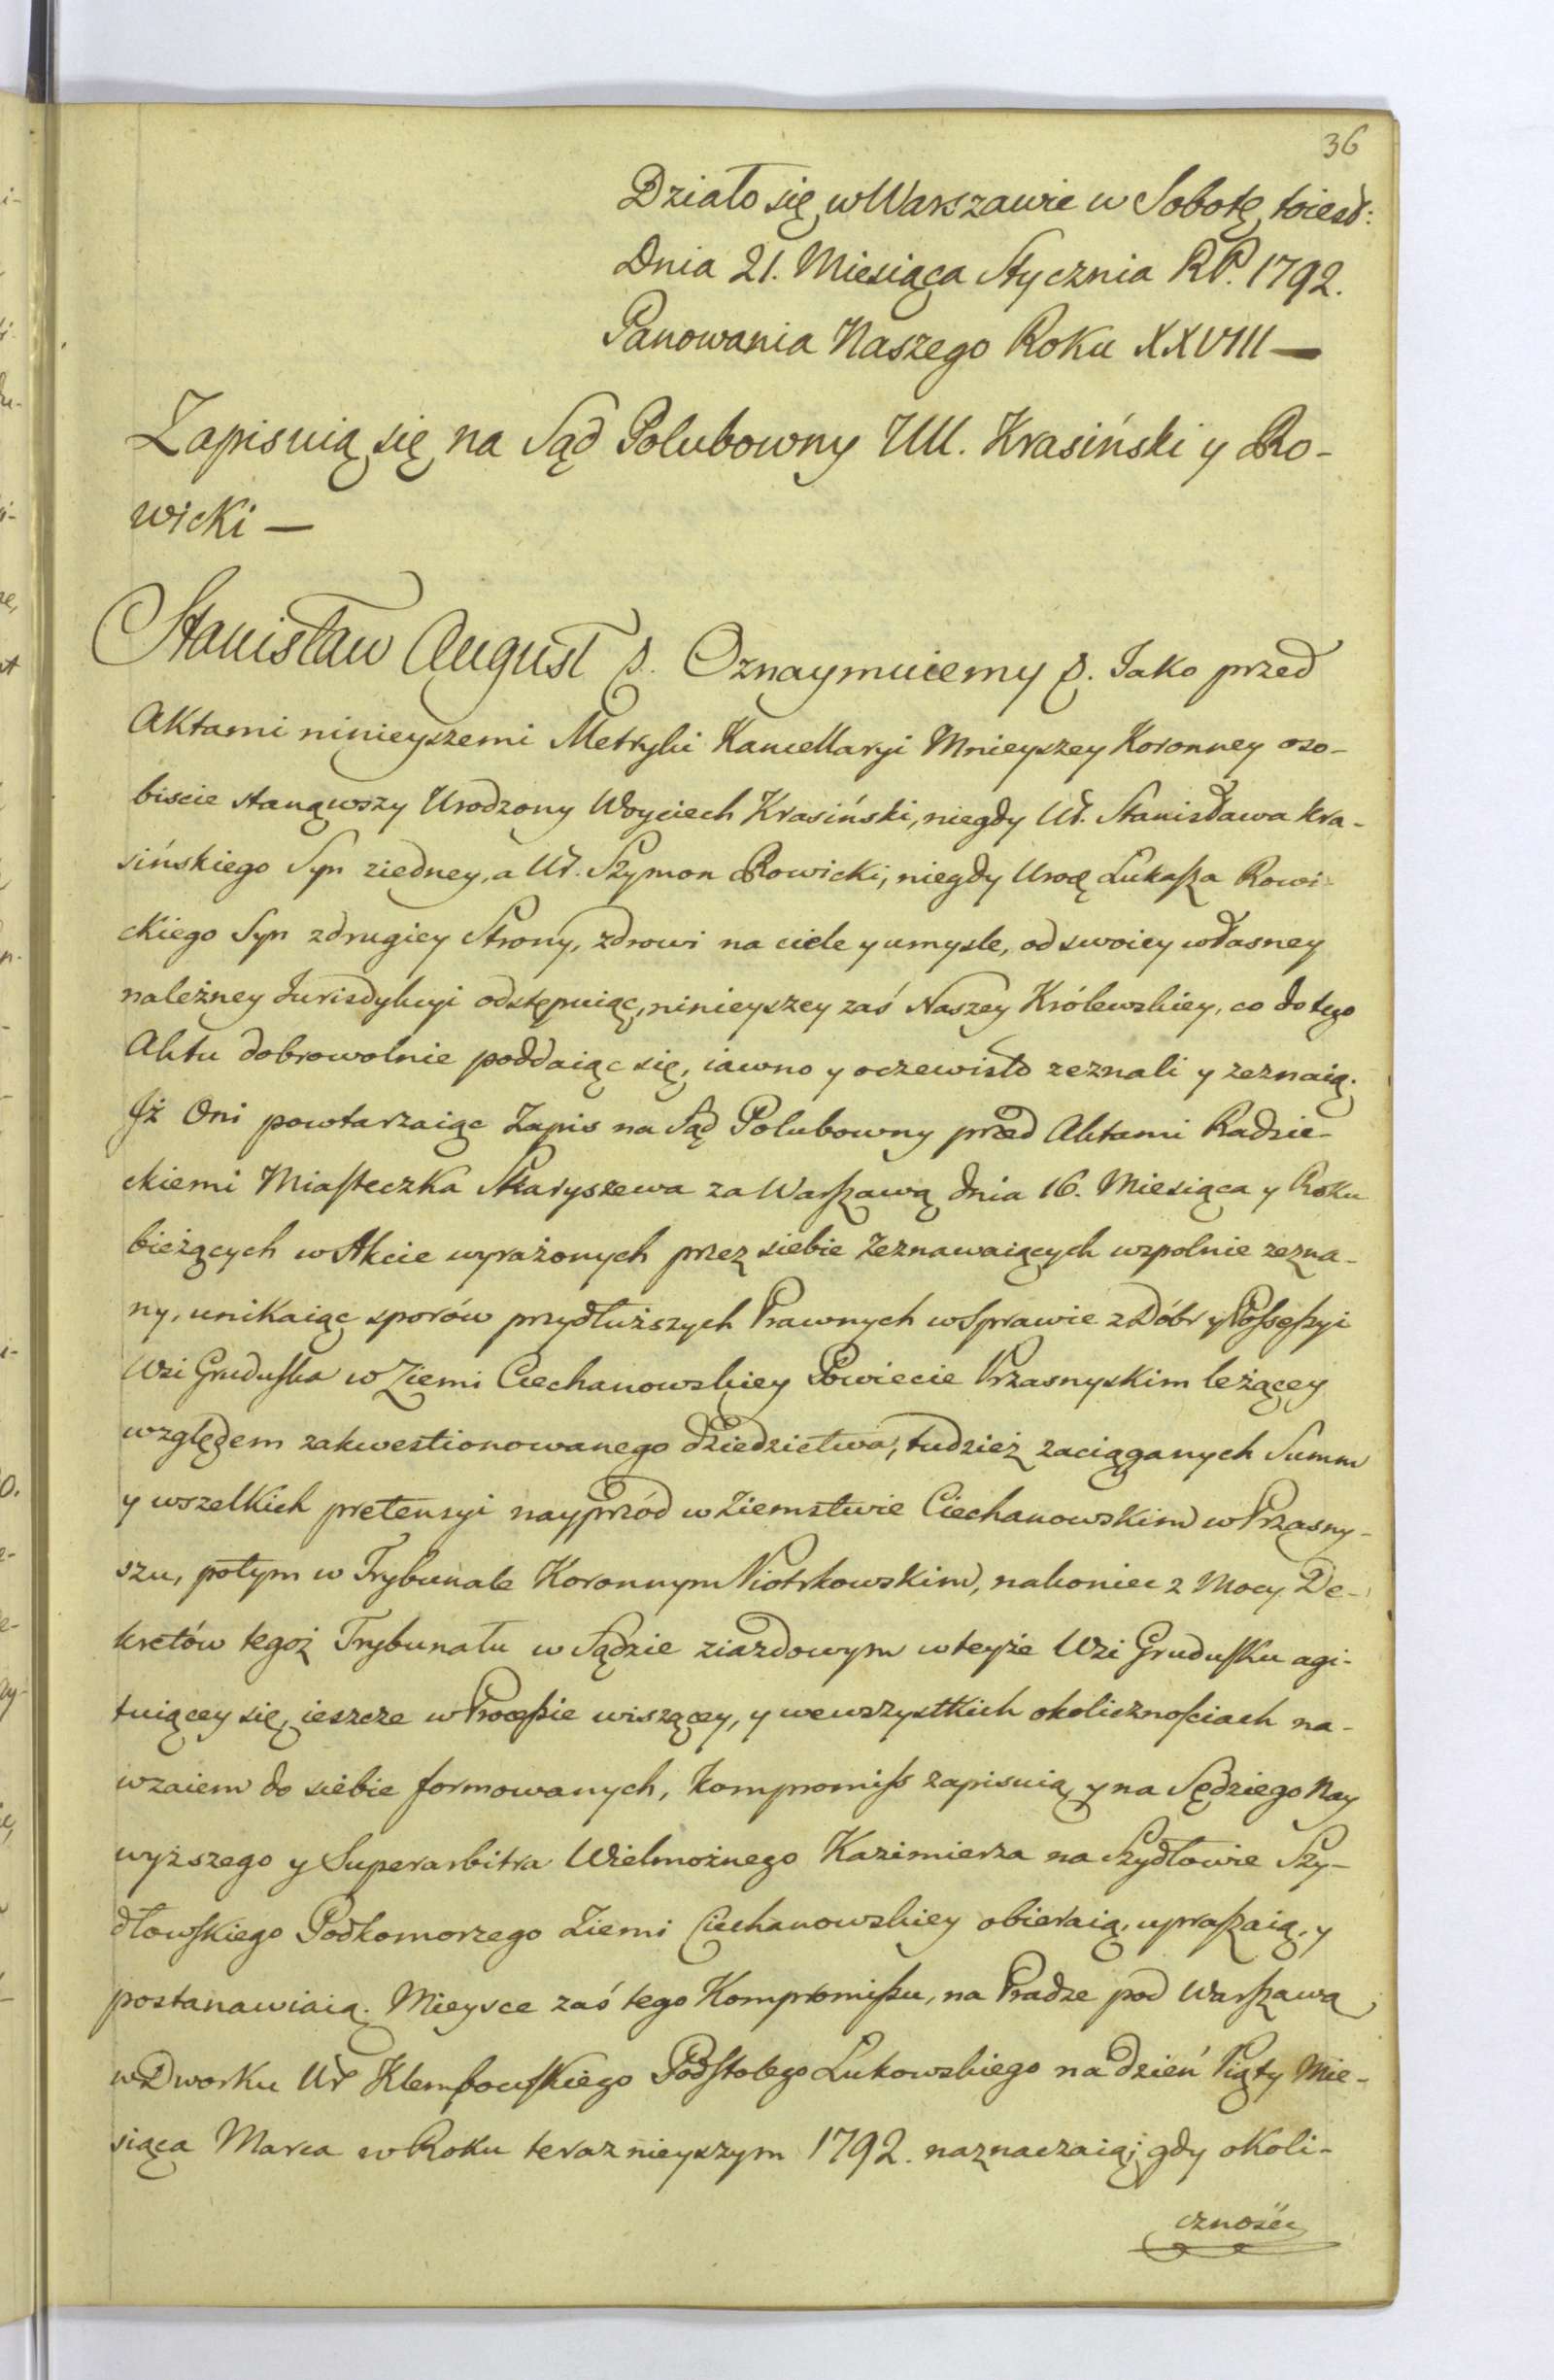 36
Działo się w Warszawie w Sobotę toiest:
Dnia 21. Miesiąca Stycznia RP. 1792.
Panowania Naszego Roku XXVIII —
Zapisuią się na Sąd Polubowny UU. Krasiński y Ro-
wicki —
Stanisław August &. Oznaymuiemy &. Jako przed
Aktami ninieyszemi Metryki Kancellaryi Mnieyszey Koronney oso-
biscie stanąwszy Urodzony Woyciech Krasiński, niegdy Ur. Stanisława Kra-
sińskiego Syn ziedney, a Ur. Szymon Rowicki, niegdy Urod Łukasza Rowi-
ckiego Syn zdrugiey Strony, zdrowi na ciele y umysle, od swoiey własney
należney Jurisdykcyi odstępuiąc, ninieyszey zaś Naszey Królewskiey, co do tego
Aktu dobrowolnie poddaiąc się, iawno y oczewisto zeznali y zeznaią.
Jż Oni powtarzaiąc Zapis na Sąd Polubowny przed Aktami Radzie-
ckiemi Miasteczka Skaryszewa za Warszawą dnia 16. Miesiąca y Roku
bieżących w Akcie wyrażonych przez siebie Zeznawaiących wspolnie zezna-
ny, unikaiąc sporów przydłuższych Prawnych w Sprawie z Dóbr y Possessyi
Wsi Gruduska w Ziemi Ciechanowskiey Powiecie Przasnyskim leżącey
względem zakwestionowanego dziedzictwa, tudzież zaciąganych Summ
y wszelkich pretensyi nayprzód w Ziemstwie Ciechanowskim w Prząsny-
szu, potym w Trybunale Koronnym Piotrkowskim, nakoniec z Mocy De-
kretów tegoż Trybunału w Sądzie ziazdowym w teyże Wsi Grudusku agi-
tuiącey się, ieszcze w Processie wiszącey, y we wszystkich okolicznościach na-
wzaiem do siebie formowanych, kompromiss zapisuią y na Sędziego Nay
wyższego y Superarbitra Wielmożnego Kazimierza na Szydłowie Szy-
dłowskiego Podkomorzego Ziemi Ciechanowskiey obieraią, upraszaią, y
postanawiaią. Mieysce zaś tego Kompromissu, na Pradze pod Warszawą
w Dworku Ur Klempowskiego Podstolego Łukowskiego na dzień Piąty Mie-
siąca Marca w Roku teraznieyszym 1792. naznaczaią; gdy okoli-
czność